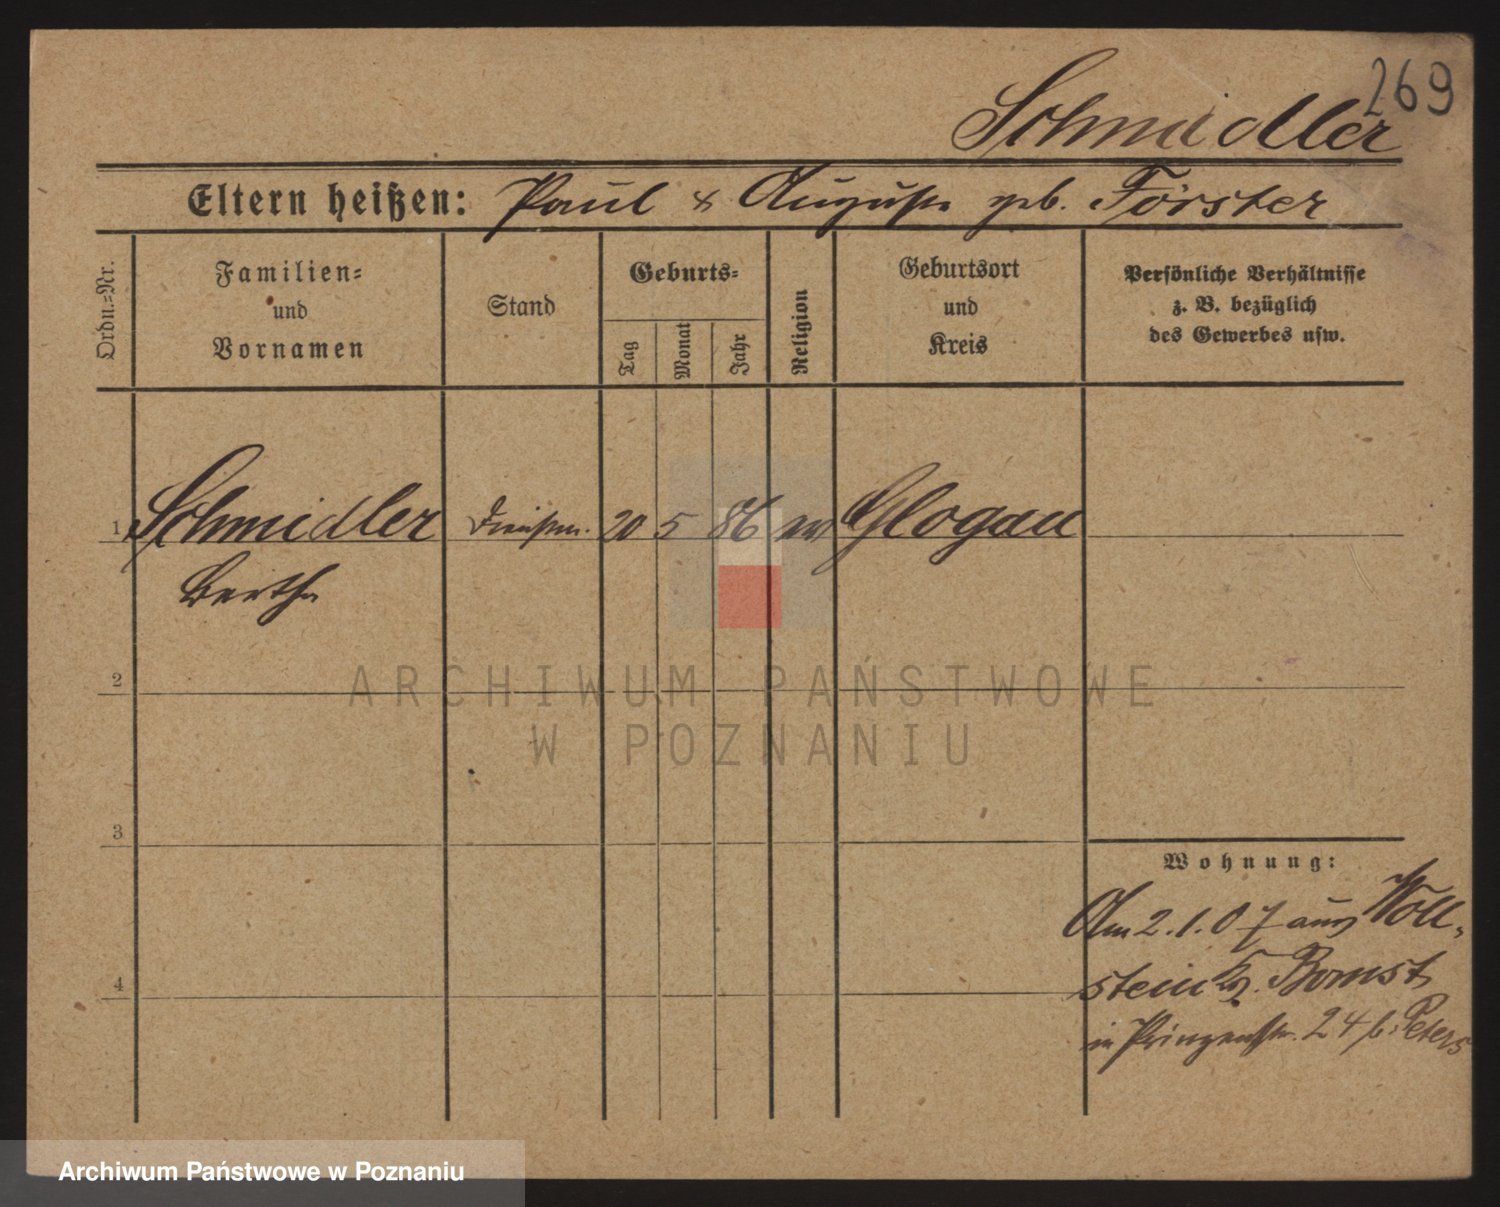 269
Schmidler
Eltern heißen: Paul & Auguste geb. Förster
Ordn.=Nr.
Familien=
und
Vornamen
Stand
Geburts=
Tag
Monat
Jahr
Religion
Geburtsort
und
Kreis
Persönliche Verhältnisse
z. B. bezüglich
des Gewerbes usw.
1 Schmidler Dienstm. 20 5 86 ev Glogau
Bertha
2
3
4
Wohnung:
Am 2.1.07 aus Woll-
stein Kr. Bomst
in Prinzenstr. 24 b. Peters
ARCHIWUM PAŃSTWOWE
W POZNANIU
Archiwum Państwowe w Poznaniu